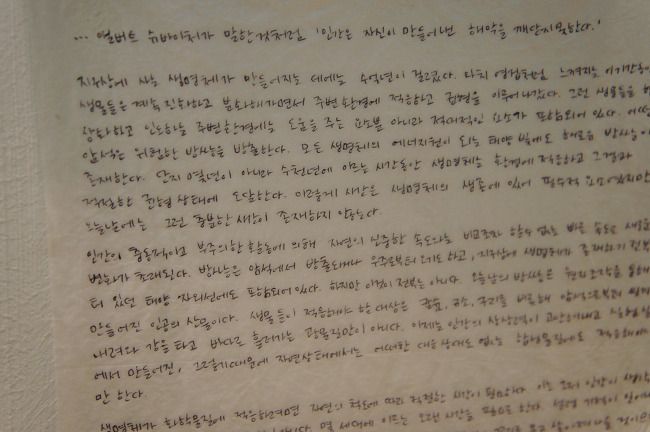 ... 앨버트 슈바이처가 말한 것처럼 '인간은 자신이 만들어낸 해악을 깨닫지 못한다.'
지구상에 사는 생명체가 만들어지는 데에는 수억년이 걸렸다. 마치 영겁처럼 느껴지는 이 기간동안
생물들은 계속 진화하고 분화해가면서 주변 환경에 적응하고 균형을 이루어나갔다. 그런 생물들을 형
상화하고 인도하는 주변환경에는 도움을 주는 요소뿐 아니라 적대적인 요소가 포함되어 있다. 어떤
암석은 위험한 방사능을 방출한다. 모든 생명체의 에너지원이 되는 태양 빛에도 해로운 방사능이
존재한다. 단지 몇년이 아니라 수천년에 이르는 시간동안 생명체는 환경에 적응하고 그 결과
적절한 균형 상태에 도달한다. 이렇게 시간은 생명체의 생존에 있어 필수적 요소였지만
오늘날에는 그런 충분한 시간이 존재하지 않는다.
인간의 충동적이고 부주의한 활동에 의해 자연의 신중한 속도와는 비교조차 할수 없는 빠른 속도로 새로운
변화가 초래된다. 방사능은 암석에서 방출되거나 우주로부터 내려오고, 지구상에 생명체가 존재하기 전부
터 있던 태양 자외선에도 포함되어 있다. 하지만 이것이 전부는 아니다. 오늘날의 방사능은 원자조작을 통해
만들어진 인공의 산물이다. 생물들이 적응해야 할 대상은 칼슘, 규소, 구리를 비롯해 암석으로부터 씻겨
내려와 강을 타고 바다로 흘러가는 광물질만이 아니다. 이제는 인간의 상상력이 고안해내고 실험실
에서 만들어진, 그렇기 때문에 자연상태에서는 어떠한 대응상대도 없는 합성물질에도 적응해야
만 한다.
생명체가 화학물질에 적응하려면 자연의 척도에 따라 적절한 시간이 필요하다. 이는 그저 인간이 생각
몇 세대에 이르는 오랜 시간을 필요로 한다.